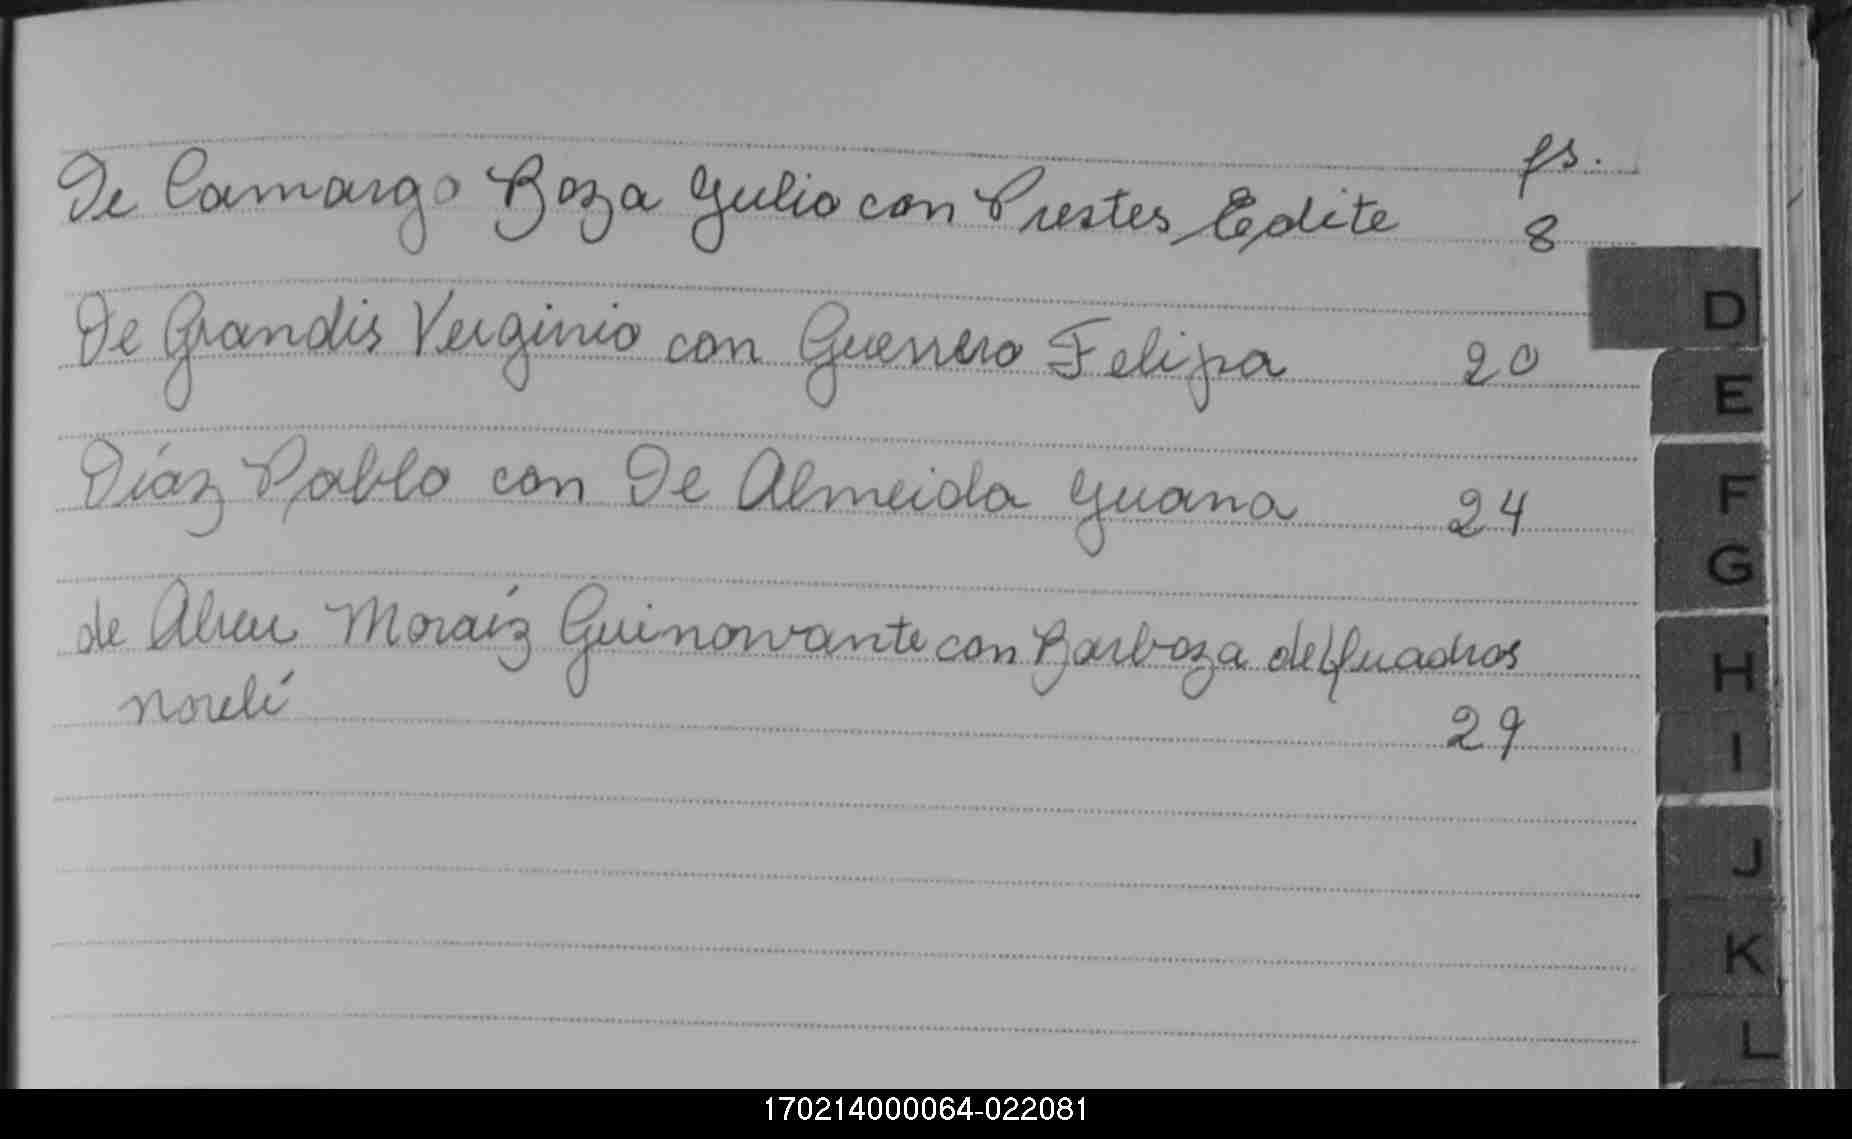 fs.
De Camargo Boza Julio con Prestes, Edite 8
De Grandis Verginio con Guerrero Felipa 20
Díaz Pablo con De Almeida Juana 24
de Abreu Moraíz Guinovante con Barboza de Quadros
Norelí 29
D
E
F
G
H
I
J
K
L
170214000064-022081